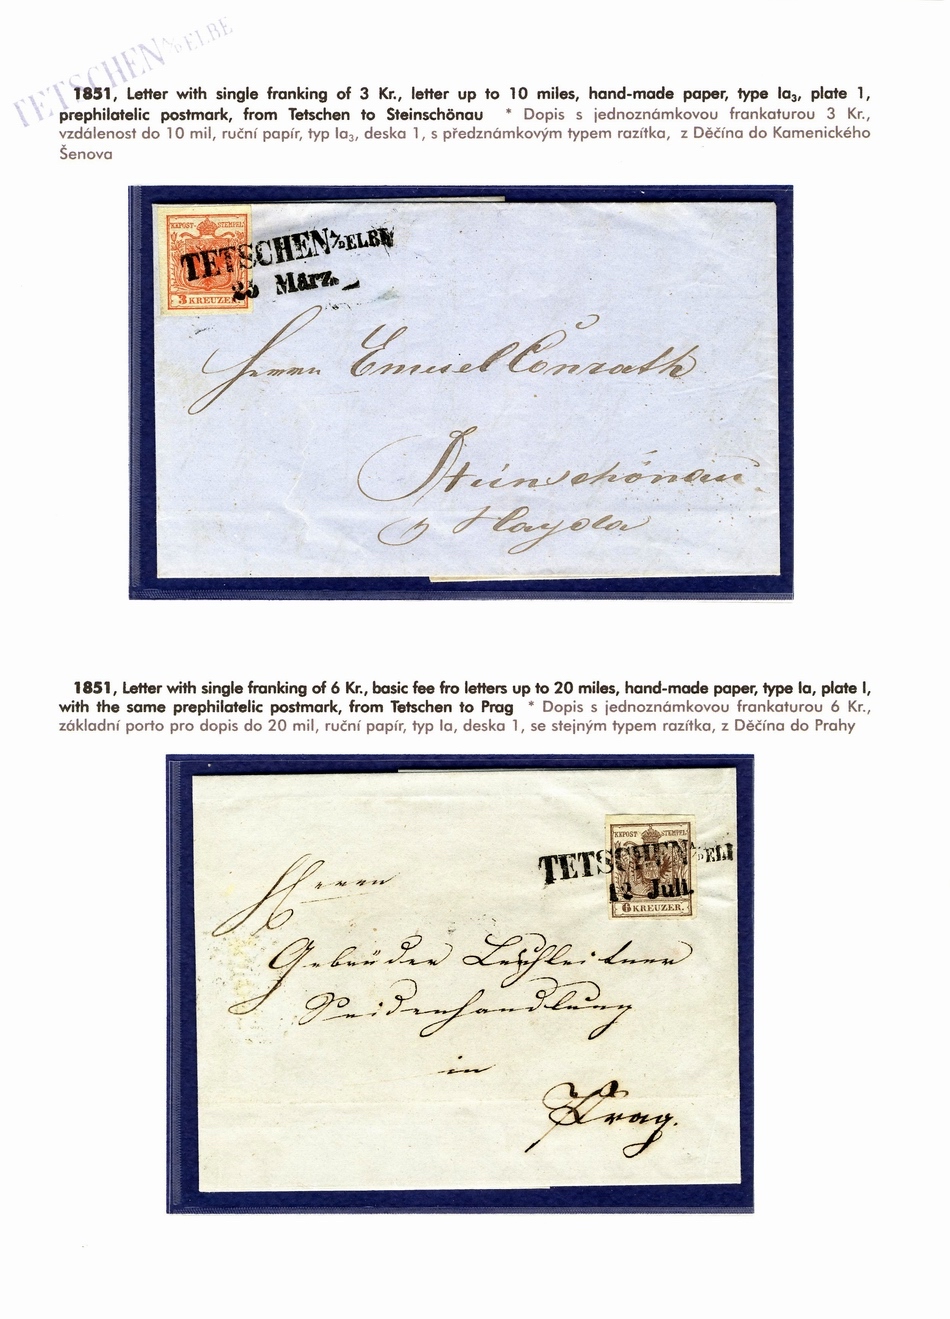 TETSCHEN A/D ELBE
1851, Letter with single franking of 3 Kr., letter up to 10 miles, hand-made paper, type Ia3, plate 1,
prephilatelic postmark, from Tetschen to Steinschönau * Dopis s jednoznámkovou frankaturou 3 Kr.,
vzdálenost do 10 mil, ruční papír, typ Ia3, deska 1, s předznámkovým typem razítka, z Děčína do Kamenického
Šenova
KKPOST-STEMPEL
TETSCHEN A/D ELBE
25 März.
3 KREUZER.
Herrn Conrath
Steinschönau
Hayda
1851, Letter with single franking of 6 Kr., basic fee fro letters up to 20 miles, hand-made paper, type Ia, plate I,
with the same prephilatelic postmark, from Tetschen to Prag * Dopis s jednoznámkovou frankaturou 6 Kr.,
základní porto pro dopis do 20 mil, ruční papír, typ Ia, deska 1, se stejným typem razítka, z Děčína do Prahy
KKPOST-STEMPEL
TETSCHEN A/D ELB
12 Juli.
6 KREUZER.
Herren
Gebrüder Leschleitner
Seidenhandlung
in
Prag.